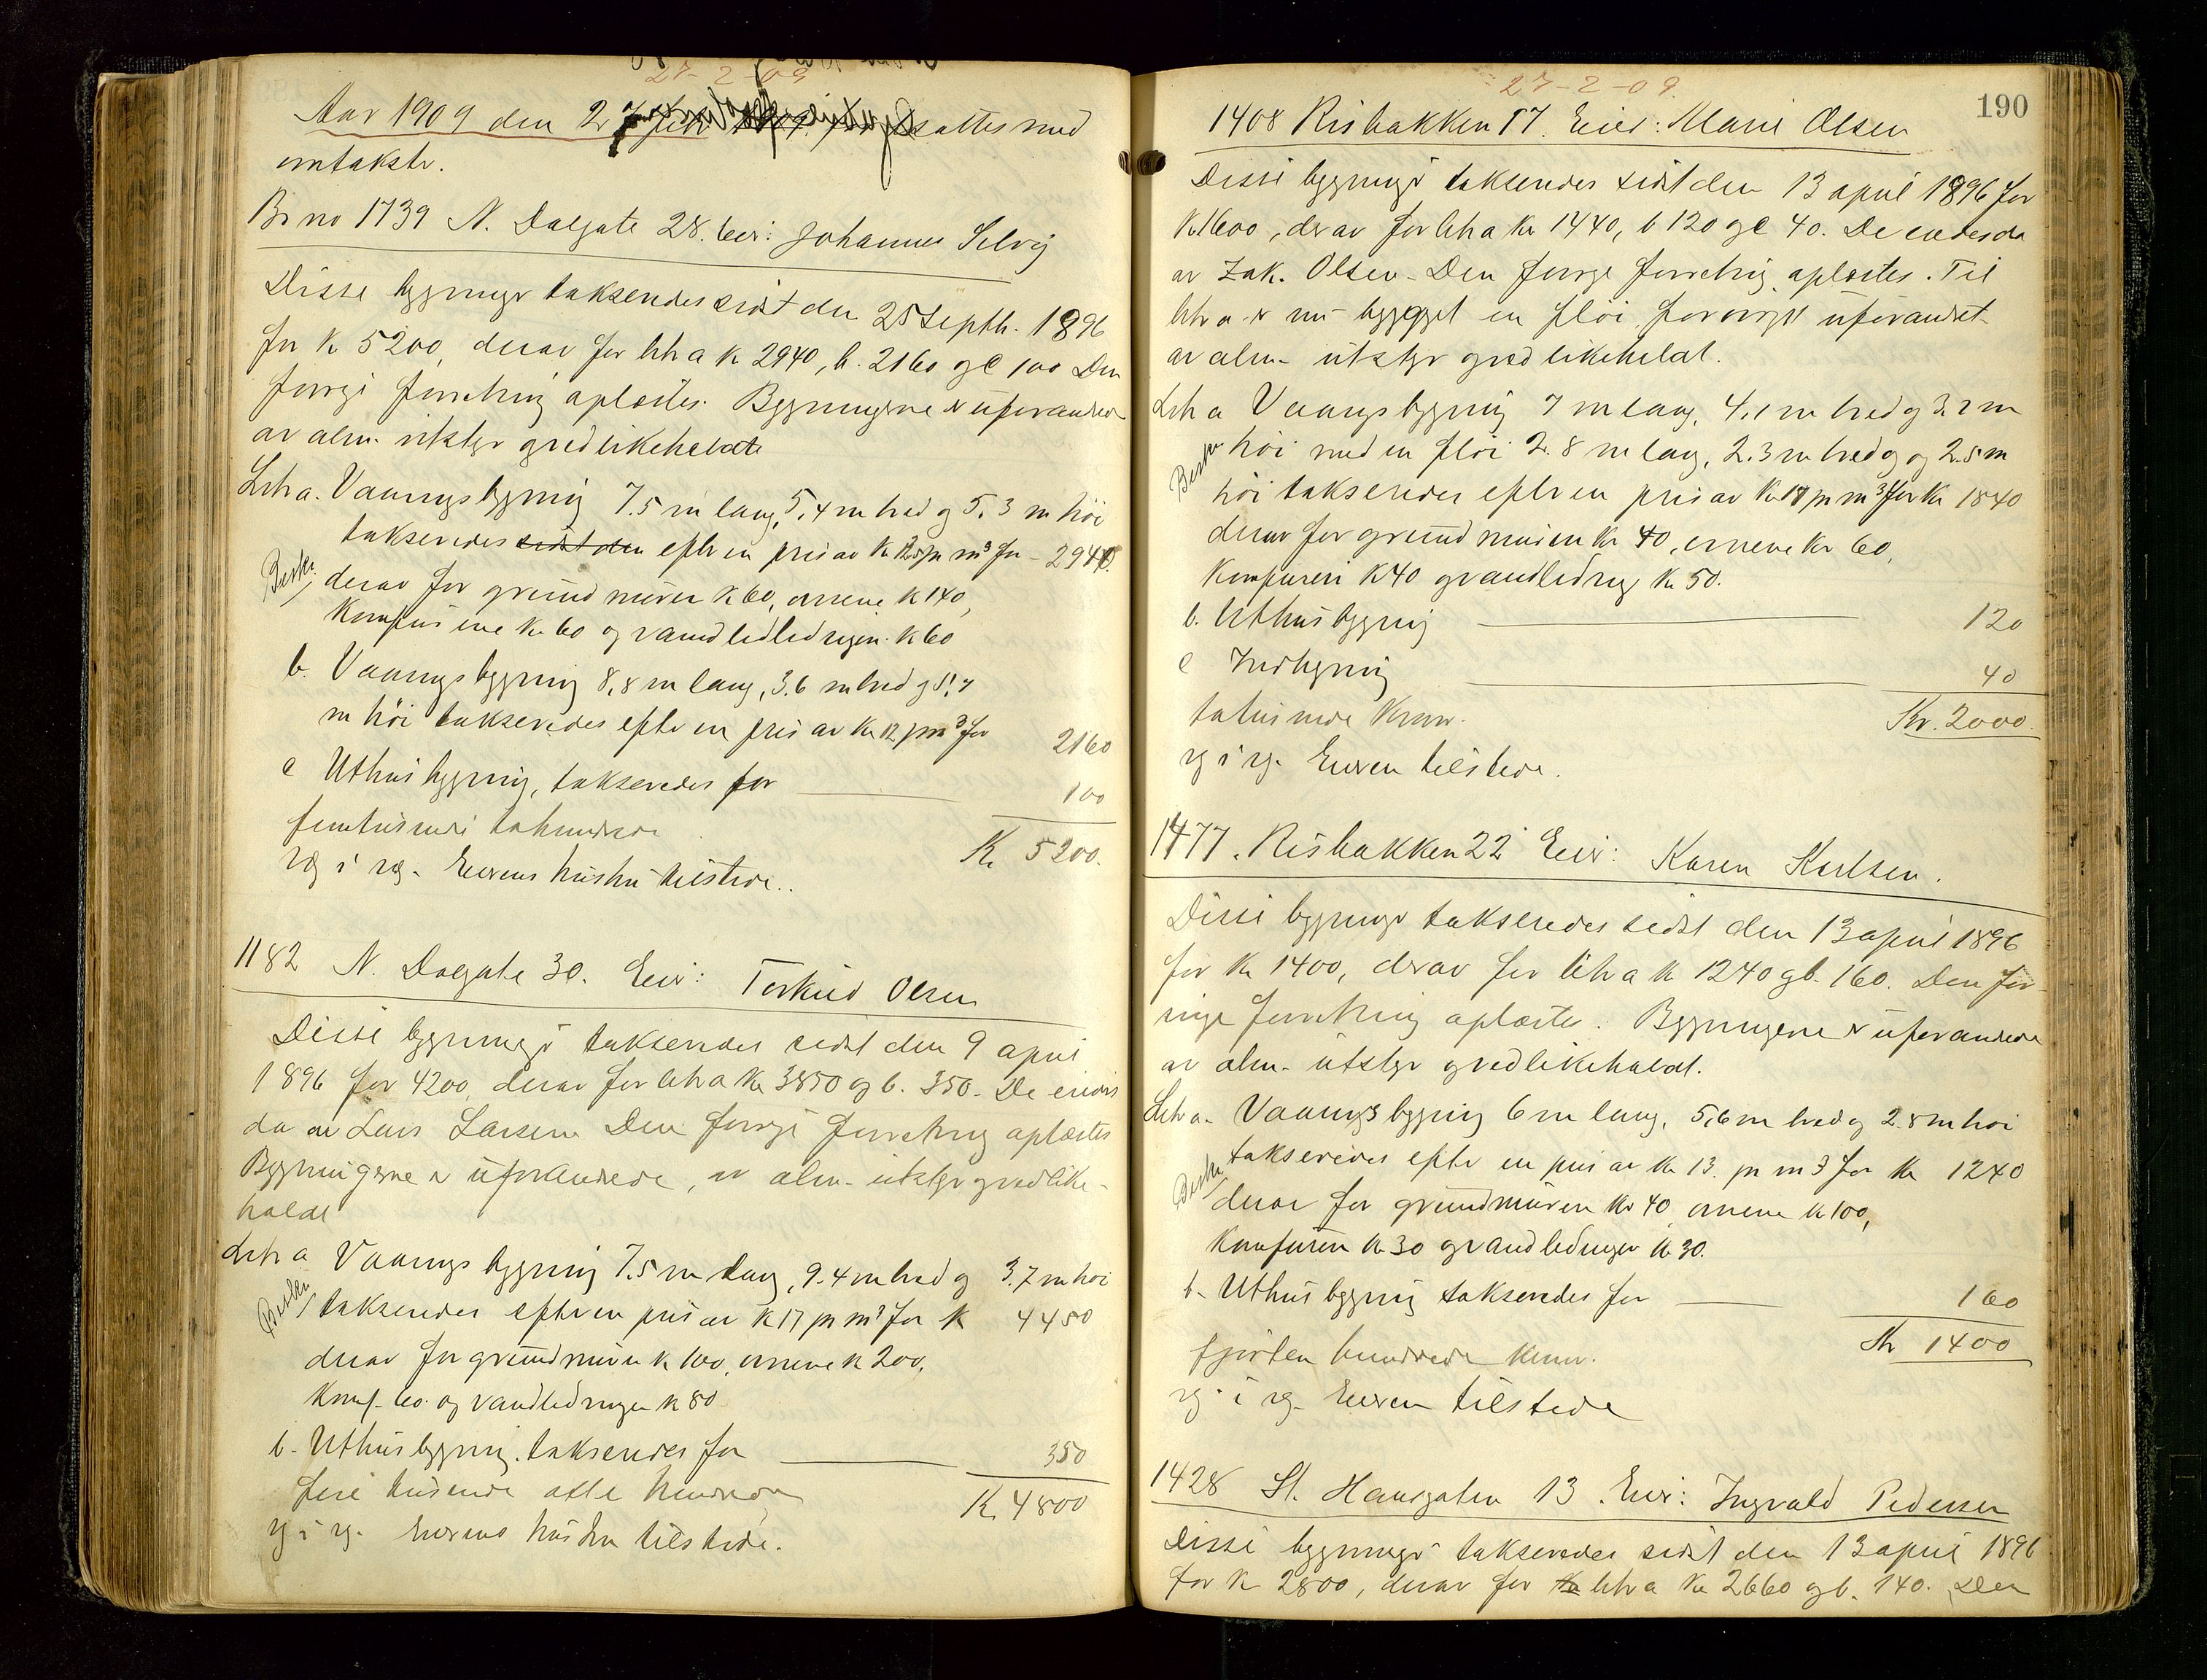 27-2-09
Aar 1909 den 27 feb. fortsattes med
omtakstr.
Br no 1739 N. Dalgate 28. Eier: Johannes Selvig
Disse bygninger takseredes sidst den 25 septb. 1896
for K 5200, derav for litra a K 2940, b. 2160 og c 100 Den
forrige forretning oplæstes. Bygningerne er uforandrede
av alm. utstyr og vedlikeholdt
Litr a. Vaaningsbygning 7.5 m lang, 5,4 m bred og 5,3 m høi
takseredes sidst den efter en pris av K 12.5 pr m³ for - 2940.
Beskr. derav for grundmuren K 60, ovnene K 140,
Komfurene Kr 60 og vandledledningen K 60
b. Vaaningsbygning 8,8 m lang, 3.6 m bred og 5,7
m høi takseredes efter en pris av Kr 12 pr m³ for 2160
c Uthusbygning, takseredes for 100
femtusinde tohundrede Kr 5200.
rg i rg. Eierens hustru tilstede..
1182 N. Dalgate 30. Eier: Torkild Olsen
Disse bygninger takseredes sidst den 9 april
1896 for 4200, derav for litra a Kr 3850 og b. 350. De eiedes
da av Lars Larsen. Den forrige forretning oplæstes
Bygningerne er uforandrede, av alm. utstyr og vedlike-
holdt
Litr a Vaaningsbygning 7.5 m lang, 9.4 m bred og 3.7 m høi
Beskr. takseredes efter en pris av K 17 pr m³ for K 4450
derav for grundmuren K 100, ovnene K 200,
Komf. 60. og vandledningen K 80
b. Uthusbygning. takseredes for 350
fire tusinde otte hundrede K. 4800
rg i rg. Eierens hustru tilstede.
190
27-2-09.
1408 Risbakken 17. Eier: Marie Olsen
Disse bygninger takseredes sidst den 13 april 1896 for
K 1600, derav for litra a Kr 1440, b 120 og c 40. De eiedes da
av Zak. Olsen. Den forrige forretning oplæstes. Til
litr a er nu bygget en fløi, forøvrigt uforandret
av alm. utstyr og vedlikeholdt.
Litr a Vaaningsbygning 7 m lang, 4,1 m bred og 3.2 m
Beskr høi med en fløi 2.8 m lang, 2.3 m bred og og 2.5 m
høi takseredes efter en pris av Kr 17 pr m³ for Kr 1840
derav for grundmuren Kr 40, ovnene Kr 60,
Komfuren K 40 og vandledning Kr 50.
b. Uthusbygning 120
c Indhegning 40
totusinde Kroner. Kr. 2000.
rg i rg. Eieren tilstede.
1477. Risbakken 22 Eier: Karen Karlsen.
Disse bygninger takseredes sidst den 13 april 1896
for Kr 1400, derav for litra a K 1240 og b. 160. Den for-
rige forretning oplæstes. Bygningerne er uforandrede
av alm. utstyr og vedlikeholdt.
Litr a. Vaaningsbygning 6 m lang, 5,6 m bred og 2.8 m høi
Beskr takseredes efter en pris av Kr 13. pr m3 for Kr 1240
derav for grundmuren Kr 40, ovnene Kr 100,
Komfuren Kr 30 og vandledningen Kr 30.
b. Uthusbygning takseredes for 160
fjorten hundrede kroner. Kr 1400
rg. i rg. Eieren tilstede
1428 St. Hansgaten 13. Eier: Ingvald Pedersen
Disse bygninger takseredes sidst den 13 april 1896
for Kr 2800, derav for Kr litra a Kr 2660 og b. 140. Den